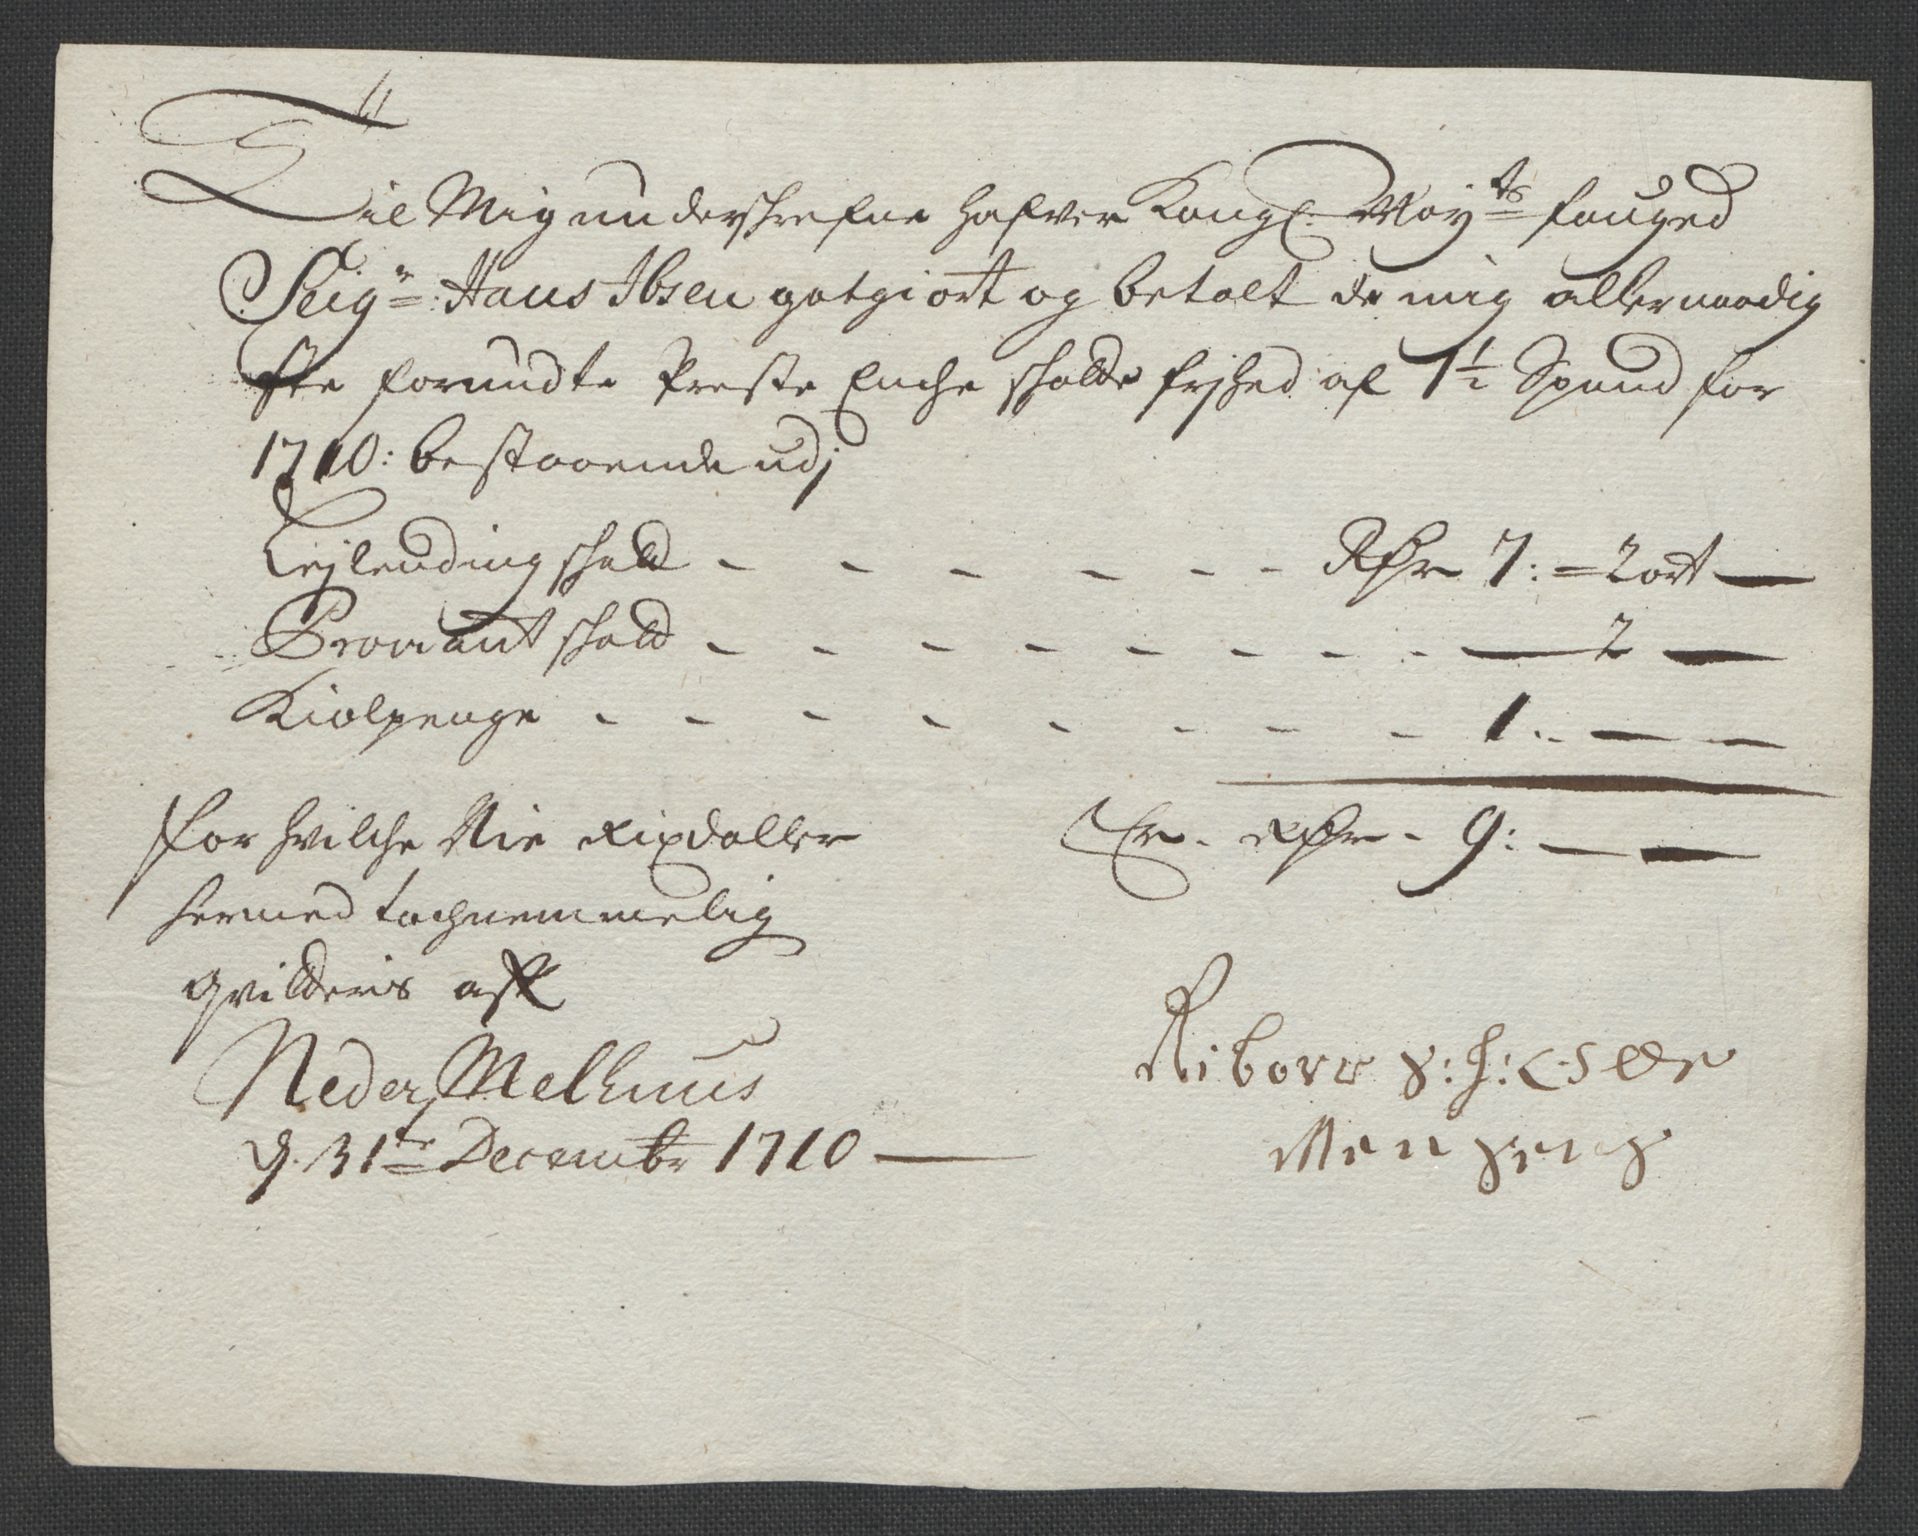 Til Mig underschrefne hafver Kongl: May:ts fouged
Seigr: Hans Ibsen gotgiort og betalt de mig allernaadig
ste forundte Preste Enche schatte frjhed af 1½ Spand for
1710: bestaaende udj
Lejlending schatt - - - - - - Rdr 7: = 2 ort —
Proviant schatt - - - - - - - - — 2 —
Kiolpenge - - - - - - - - 1: — —
Er - Rdr - 9: — —
for hvilche Nie Rixdaller
hermed tachnemmelig
qvitteris aff
Neder Melhuus
d. 31te Decembr 1710 —
Ribover S: H: